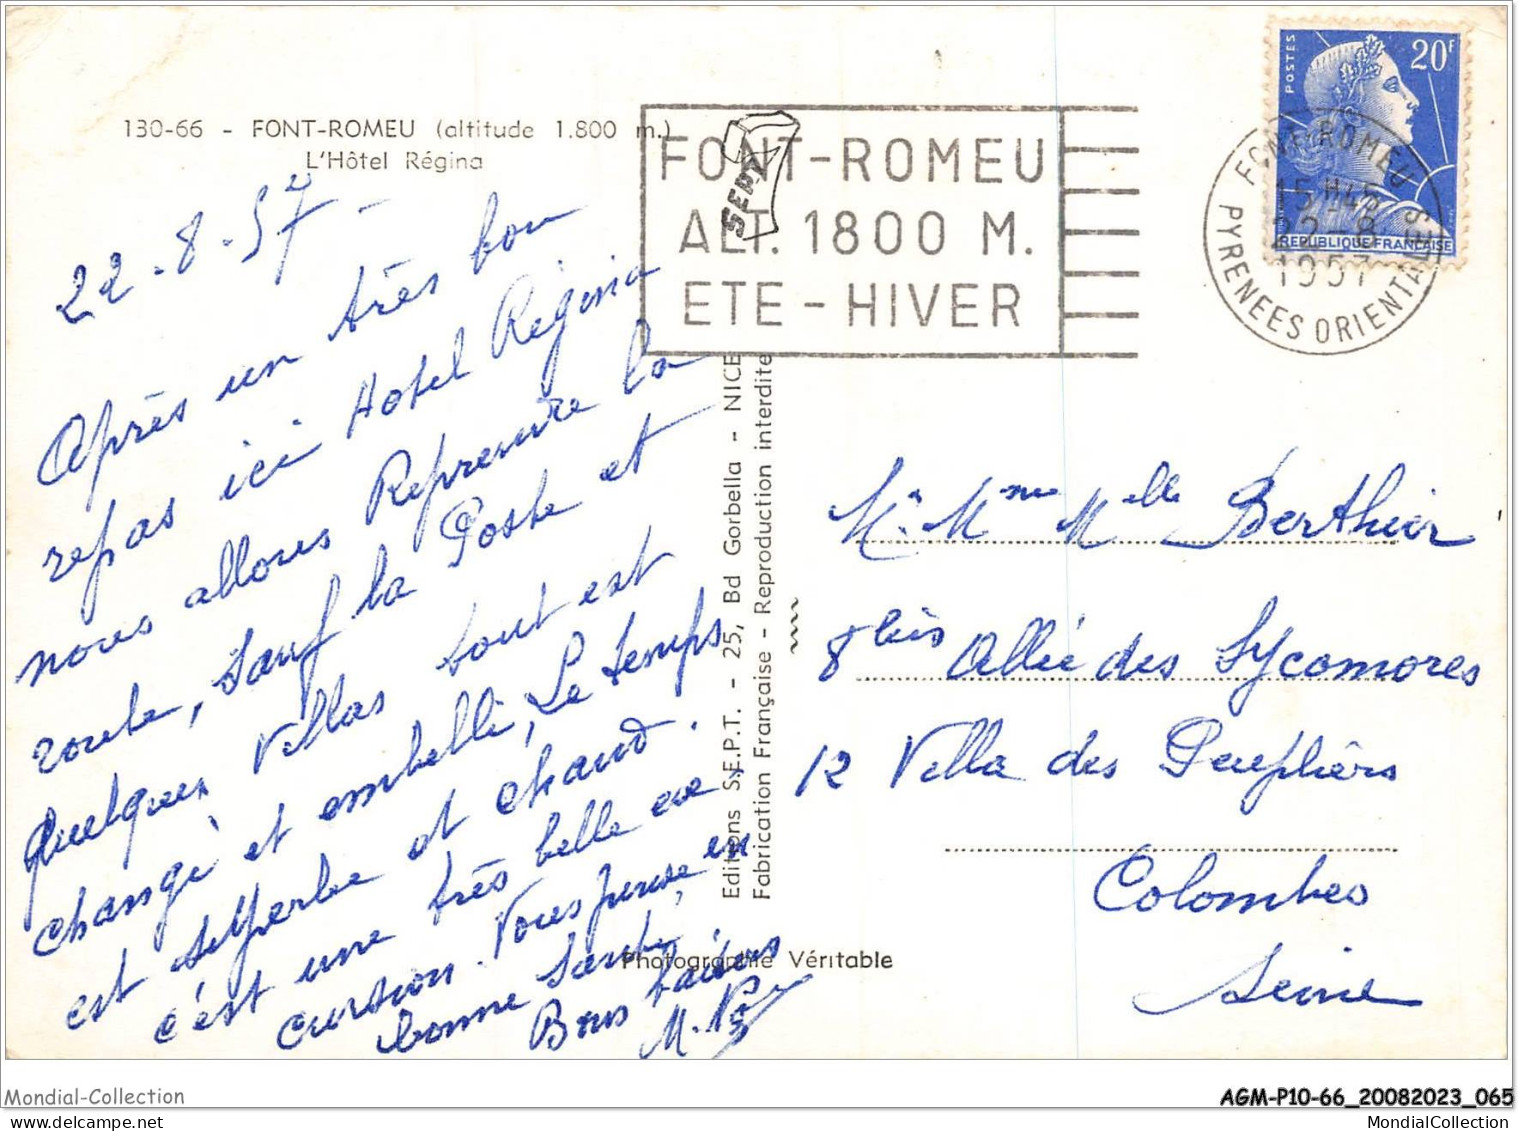 130-66 - FONT-ROMEU (altitude 1.800 m.)
L'Hôtel Régina
22-8-57-
Après un très bon
repas ici Hotel Régina
nous allons Reprendre la
route, sauf la Poste et
Quelques Villas tout est
changé et embelli, Le temps
est superbe et chaud.
c'est une très belle ex
cursion. Vous pense en
bonne santé,
Bons baisers
M.
SEPT
FONT-ROMEU
ALT. 1800 M.
ETE - HIVER
POSTES
20F
REPUBLIQUE FRANÇAISE
FONT-ROMEU
15H45
22-8
1957
PYRENEES ORIENTALES
Editions S.E.P.T. - 25, Bd Gorbella - NICE
Fabrication Française - Reproduction interdite
Photographie Véritable
Mr. Mme Mlle Berthier
8 bis Allée des Sycomores
12 Villa des Peupliers
Colombes
Seine
Mondial-Collection
AGM-P10-66_20082023_065
MondialCollection.com